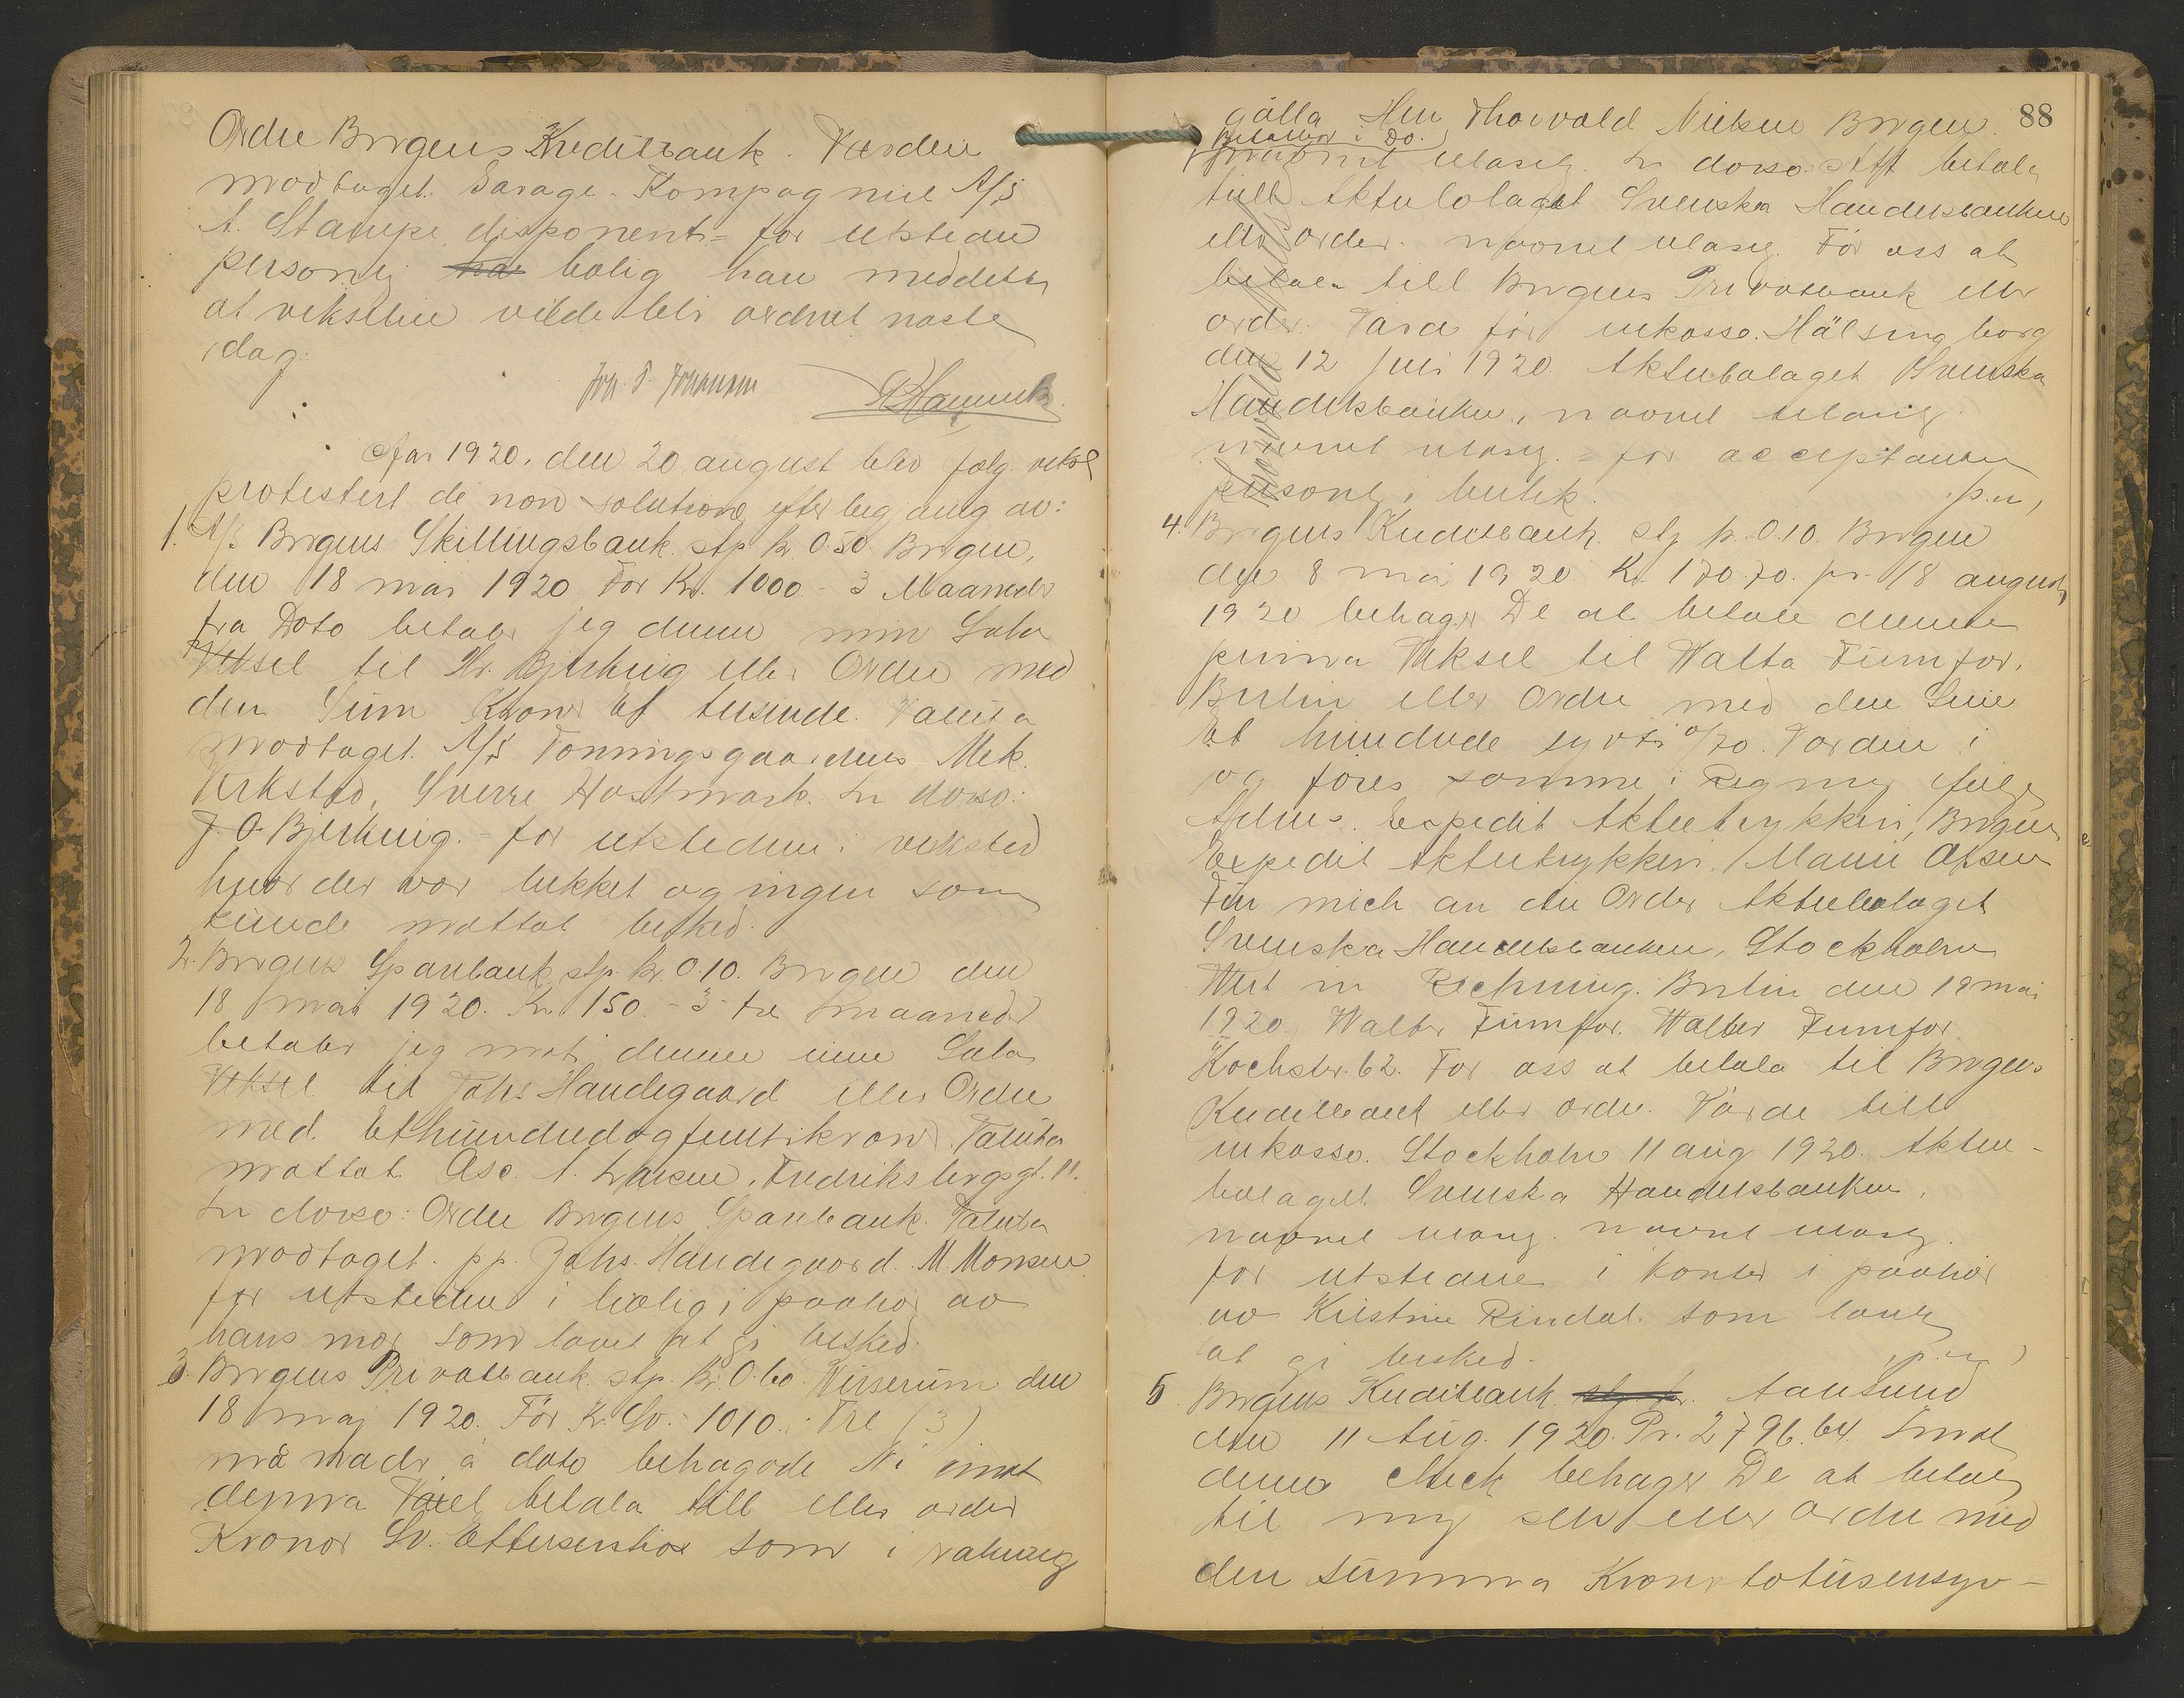 Ordre Bergens Kreditbank. Værdien
modtaget. Garage-Kompagniet A/S
A. Stampe, disponent = for utstederen
personlig i bolig han meddelte
at vekselen vilde bli ordnet næste
dag.
Joh. P. Johansen
Aar 1920, den 20 august blev følg. veksl
protestert de non solutione efter begjæring av:
1. A/S Bergens Skillingsbank. stp. kr. 0.50. Bergen,
den 18 mai 1920. For Kr. 1000 - 3 Maaneder
fra Dato betaler jeg denne min Sola
Veksel til Hr. Bjerknig eller Ordre med
den Sum Kroner Et tusinde. Valuta
modtaget. A/S Tonningsgaardens Mek.
Verksted, Sverre Hostmark. In dorso:
J. O. Bjerknig. = for utstederen i verksted
hvor der var lukket og ingen som
kunde motta besked.
2. Bergens Sparebank. stp. kr. 0.10. Bergen den
18 mai 1920. Kr. 150.- 3 - tre maaneder
betaler jeg mot denne min Sola
Veksel til Johs Haudegaard eller Ordre
med Ethundredogfemtikroner. Valuta
mottat. Asc. A. Larsen. Fredriksbergsgt. 11.
In dorso: Ordre Bergens Sparebank. Valuta
modtaget. pp. Johs. Haudegaard. M. Monsen
for utstederen i bolig i paahør av
hans mor som lovet at gi besked.
3. Bergens Privatbank stp. kr. 0.60. Wirserum den
18 maj 1920. För Kr. Sv. 1010.- Tre (3)
månader à dato behagade Ni emot
denna Växel betala till eller order
Kronor Sv. Ettusentio som i räkning
88
gälla Herr Thorvald Nielsen Bergen.
Betalbar i Do.
In dorso: Att betala
till Aktiebolaget Svenska Handelsbanken
eller order. navnet ulæselig. För oss at
betala till Bergens Privatbank eller
order. Värde för inkasso. Hälsingborg
den 12 juli 1920 Aktiebolaget Svenska
Handelsbanken, navnet ulæselig
navnet ulæselig. = for acceptanten
personlig i butik.
p.n,
4. Bergens Kreditbank. stp. kr. 0.10. Bergen
den 8 mai 1920. Kr. 170.70. pr. 18 august
1920 behager De at betale denne
prima Veksel til Walter Fumfor,
Berlin eller Ordre med den Sum
Et hundrede sytti 0/70. Værdien i
og føres samme i Regning ifølge
Advis. Expedit Aktietrykkeri, Bergen
Expedit Aktietrykkeri. Marie Olsen
Für mich an die Order Aktiebolaget
Svenska Handelsbanken, Stockholm
Wert in Rechnung. Berlin den 18 mai
1920. Walter Fumfor. Walter Fumfor
Kochstr. 62. For oss at betala til Bergens
Kreditbank eller order. Värde till
inkasso. Stockholm 11 aug 1920. Aktie-
bolaget Svenska Handelsbanken.
navnet ulæselig. navnet ulæselig.
for utstederen i kontor i paahør
av Kristine Rindal. som lovet
at gi besked.
p.n,
5. Bergens Kreditbank. Aalesund
den 11 Aug. 1920. Kr. 2796.64. Imot
denne check behager De at betale
til mig selv eller ordre med
den summa Kroner totusensyv-